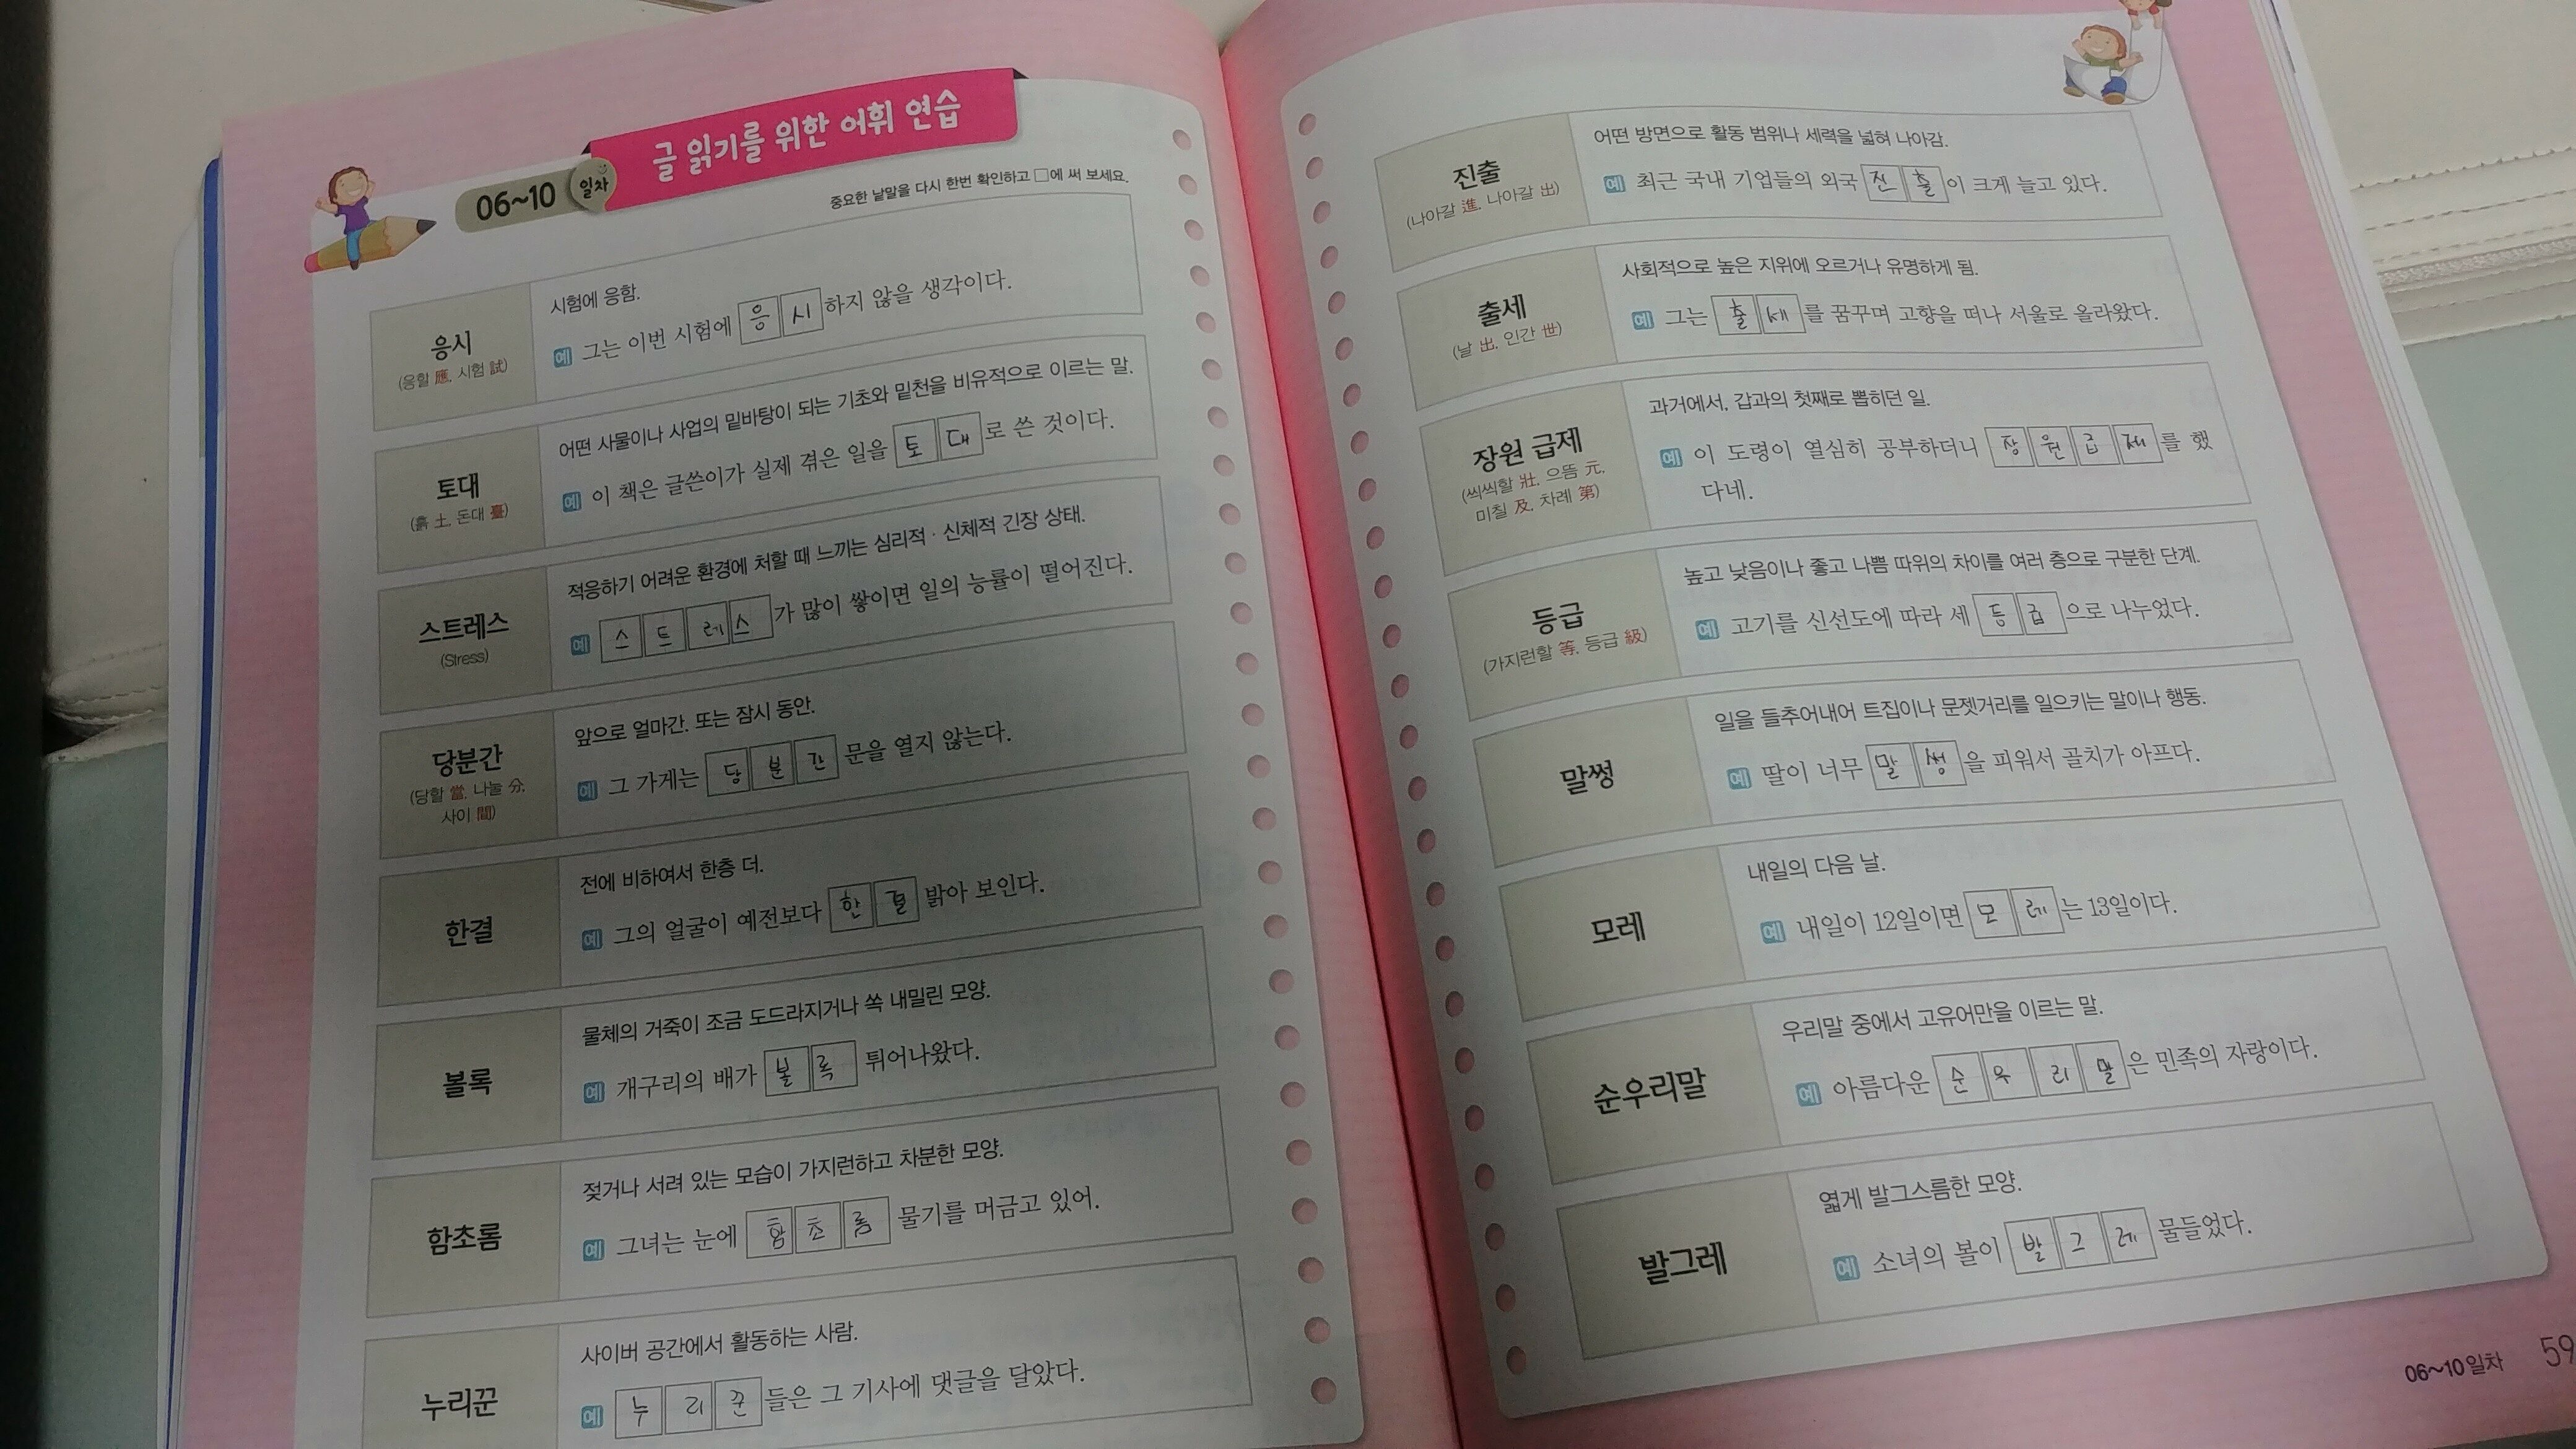 06~10 일차
글 읽기를 위한 어휘 연습
중요한 낱말을 다시 한번 확인하고 □에 써 보세요.
응시
(응할 應, 시험 試)
시험에 응함.
예 그는 이번 시험에 응시하지 않을 생각이다.
토대
(흙 土, 돈대 臺)
어떤 사물이나 사업의 밑바탕이 되는 기초와 밑천을 비유적으로 이르는 말.
예 이 책은 글쓴이가 실제 겪은 일을 토대로 쓴 것이다.
스트레스
(Stress)
적응하기 어려운 환경에 처할 때 느끼는 심리적·신체적 긴장 상태.
예 스트레스가 많이 쌓이면 일의 능률이 떨어진다.
당분간
(당할 當, 나눌 分,
사이 間)
앞으로 얼마간. 또는 잠시 동안.
예 그 가게는 당분간 문을 열지 않는다.
한결
전에 비하여서 한층 더.
예 그의 얼굴이 예전보다 한결 밝아 보인다.
볼록
물체의 거죽이 조금 도드라지거나 쏙 내밀린 모양.
예 개구리의 배가 볼록 튀어나왔다.
함초롬
젖거나 서려 있는 모습이 가지런하고 차분한 모양.
예 그녀는 눈에 함초롬 물기를 머금고 있어.
누리꾼
사이버 공간에서 활동하는 사람.
예 누리꾼들은 그 기사에 댓글을 달았다.
진출
(나아갈 進, 나아갈 出)
어떤 방면으로 활동 범위나 세력을 넓혀 나아감.
예 최근 국내 기업들의 외국 진출이 크게 늘고 있다.
출세
(날 出, 인간 世)
사회적으로 높은 지위에 오르거나 유명하게 됨.
예 그는 출세를 꿈꾸며 고향을 떠나 서울로 올라왔다.
장원 급제
(씩씩할 壯, 으뜸 元,
미칠 及, 차례 第)
과거에서, 갑과의 첫째로 뽑히던 일.
예 이 도령이 열심히 공부하더니 장원급제를 했
다네.
등급
(가지런할 等, 등급 級)
높고 낮음이나 좋고 나쁨 따위의 차이를 여러 층으로 구분한 단계.
예 고기를 신선도에 따라 세 등급으로 나누었다.
말썽
일을 들추어내어 트집이나 문젯거리를 일으키는 말이나 행동.
예 딸이 너무 말썽을 피워서 골치가 아프다.
모레
내일의 다음 날.
예 내일이 12일이면 모레는 13일이다.
순우리말
우리말 중에서 고유어만을 이르는 말.
예 아름다운 순우리말은 민족의 자랑이다.
발그레
엷게 발그스름한 모양.
예 소녀의 볼이 발그레 물들었다.
06~10일차 59